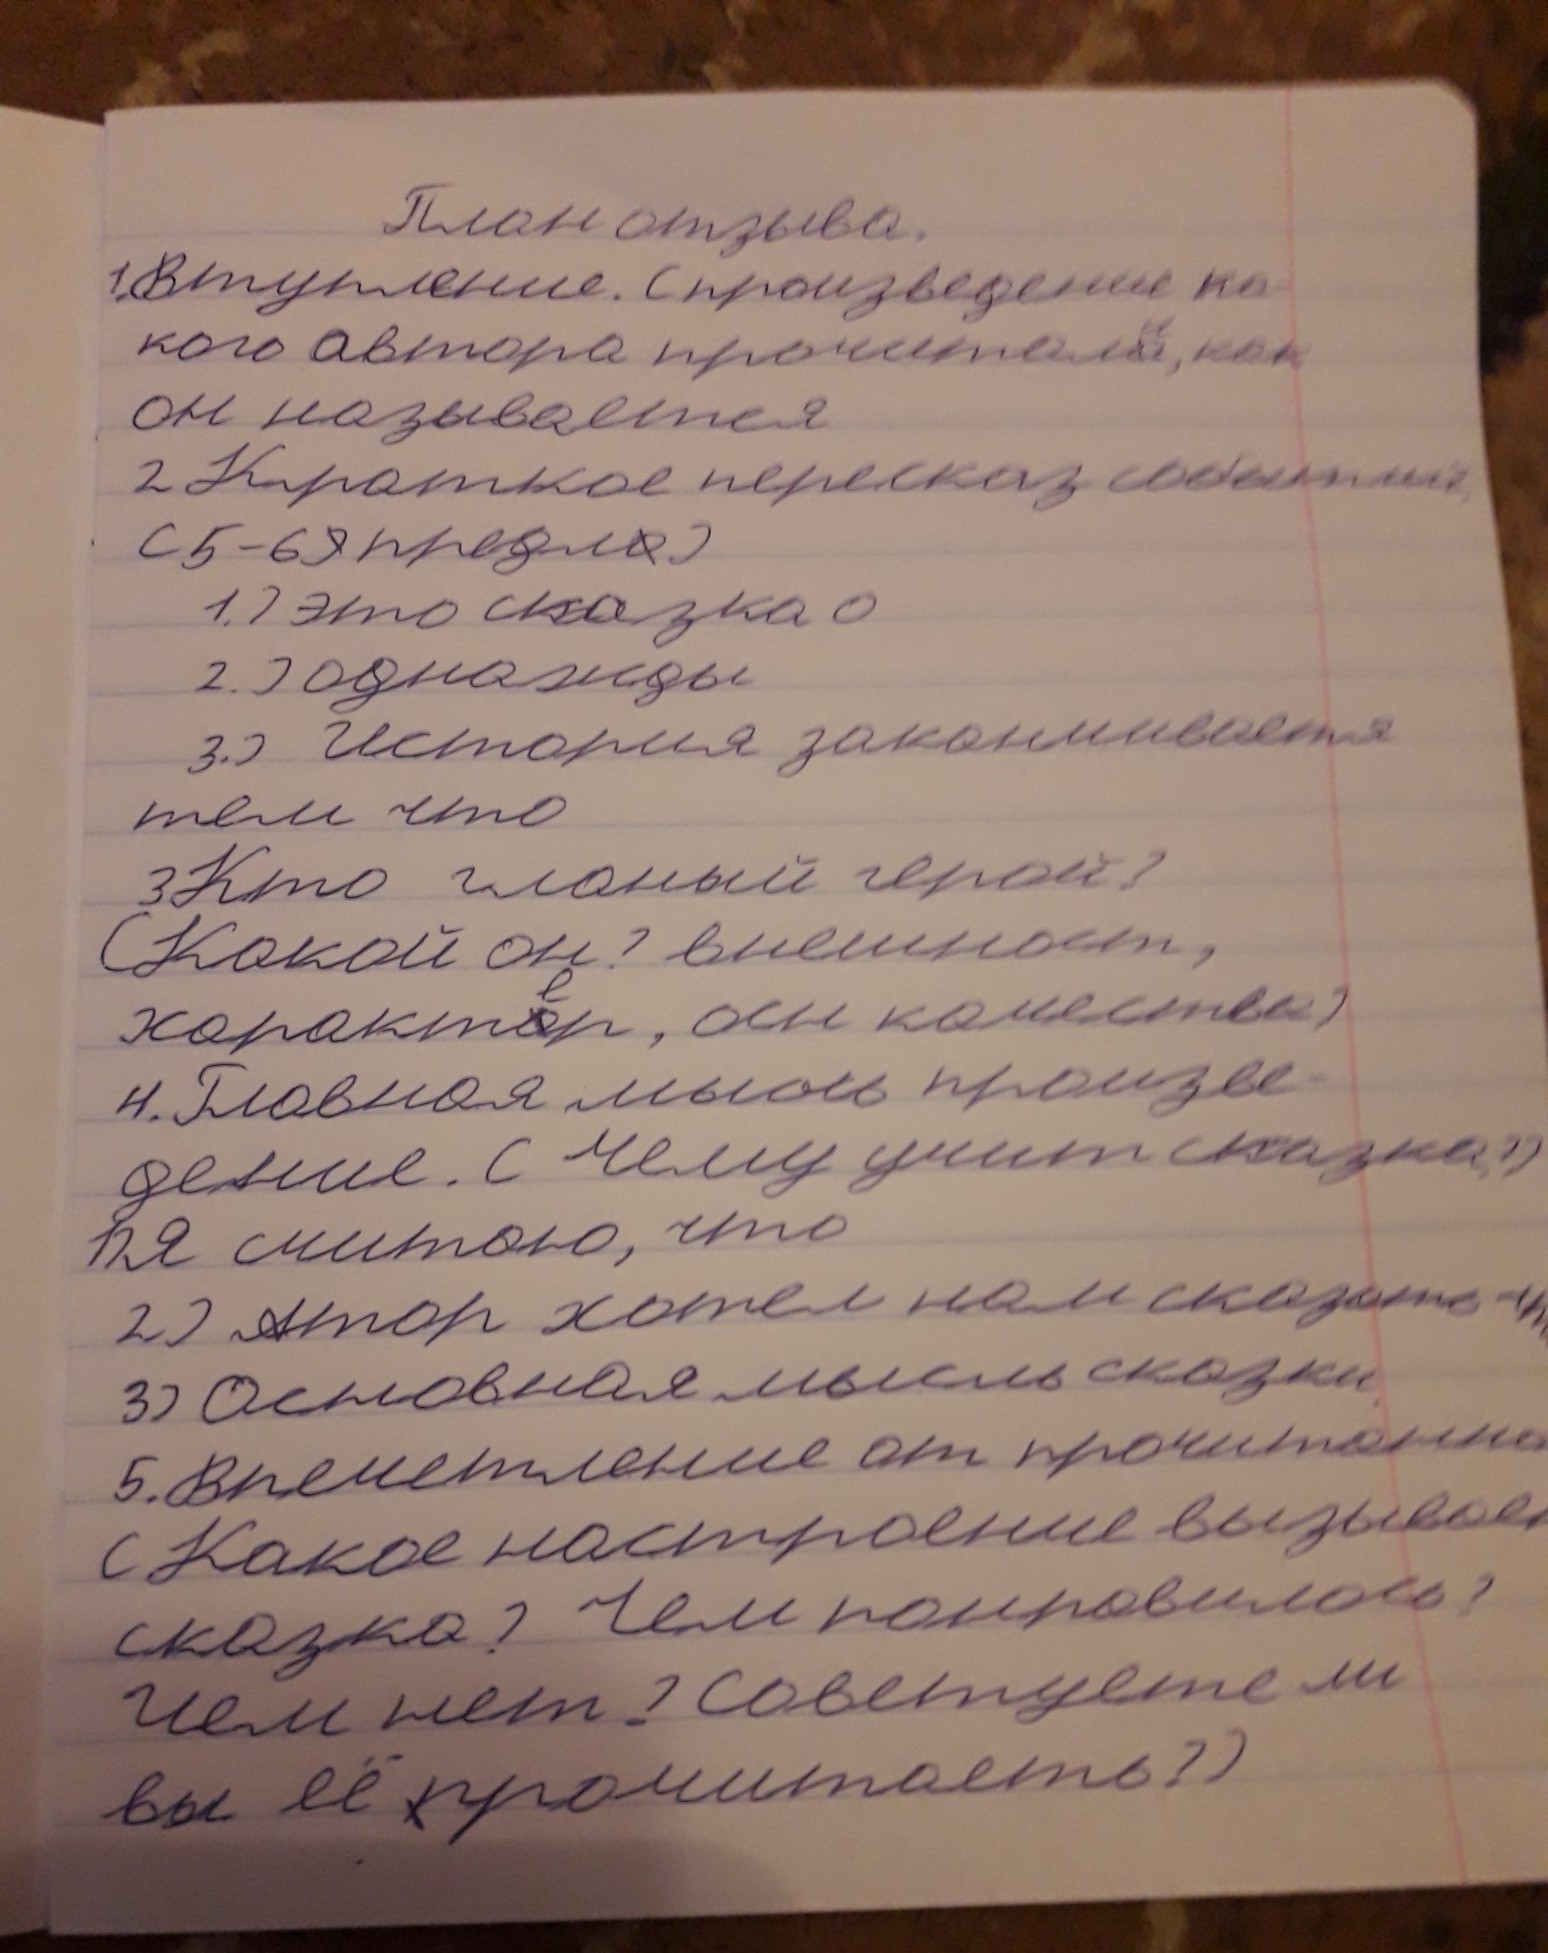 План отзыва.
1.Втупление. (произведение ка-
кого автора прочитали, как
он называется
2 Краткое пересказ событий,
(5-6 предл)
1.) это сказка о
2.) однажды
3.) История заканчивается
тем что
3 Кто гланый герой?
(Какой он? внешност,
характер, осн качества)
4. Главная мысль произве-
дение. (Чему учит сказка?)
1) Я считаю, что
2) Автор хотел нам сказать
3) Основная мысль сказки
5. Впечетление от прочитанно
(Какое настроение вызывает
сказка? Чем понравилось?
Чем нет? Советуете ли
вы её прочитаеть?)